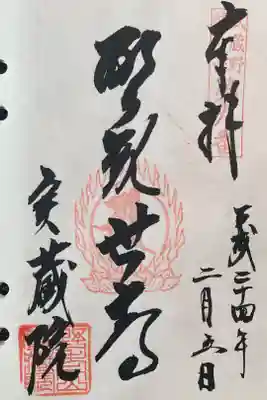 奉拝
聖観世音
平成二十四年
二月五日
実蔵院